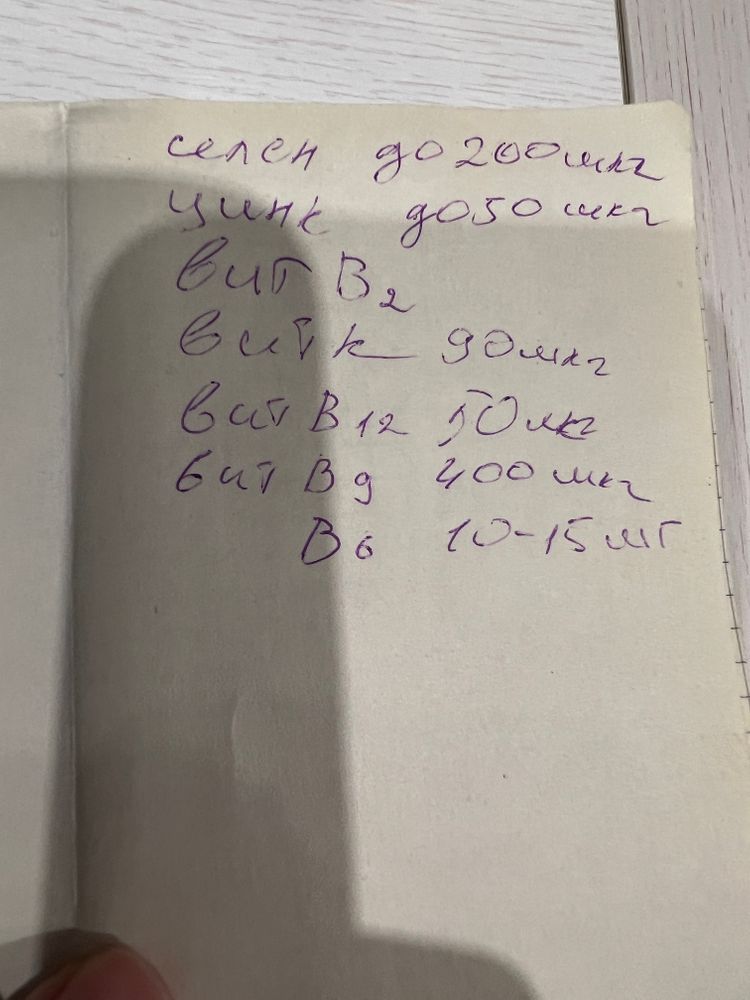 селен до 200 мкг
цинк до 50 мкг
вит B2
вит K 90 мкг
вит B12 50 мкг
вит B9 400 мкг
B6 10-15 мг